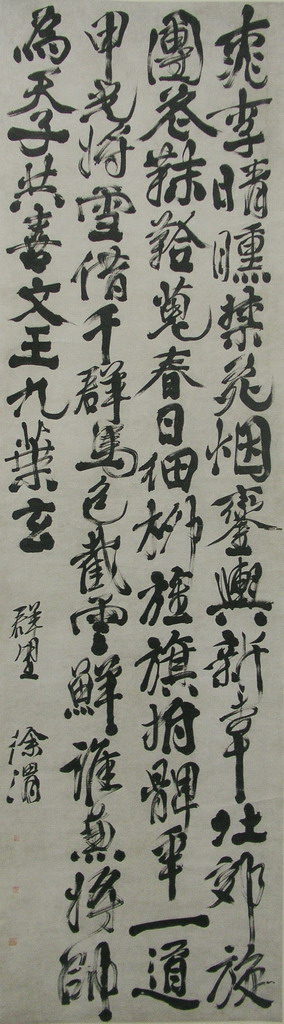 桃李晴曛禁苑烟鑾輿新幸北郊旋
團營靺鞈蒐春日細柳旌旗拊髀年一道
甲光將雪借千群馬色截雲鮮誰兼將帥
為天子共喜文王九葉玄
群望
徐渭